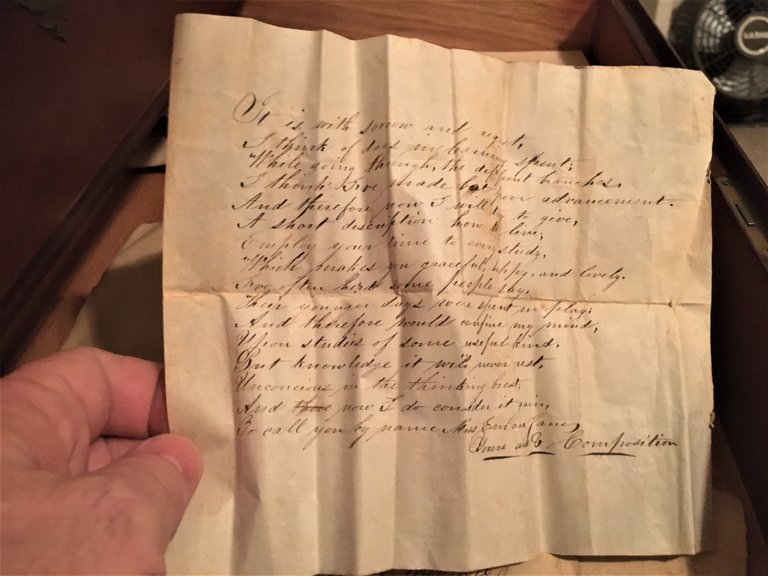 It is with sorrow and regret,
I think of days my learning spent;
While going through, the different branches,
I think I've made but poor advancement.
And therefore now I will try to give,
A short description how to live;
Employ your time to every study,
Which makes you graceful, happy, and lovely.
I've often herd some people say,
Their younger days were spent in play;
And therefore would confine my mind,
Upon studies of some useful kind.
But knowledge it will never rest,
Unconcious in the thinking
And there now I do consider it
To call you by name Miss Emma Jane,
Yours as Composition